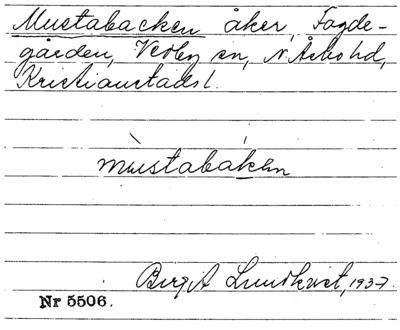 Mustabacken åker, Fagde-
gården, Verby sn, N. Åsbo hd,
Kristianstads l.
mùstabáken
Birgit Lundkvist, 1937.
Nr 5506.